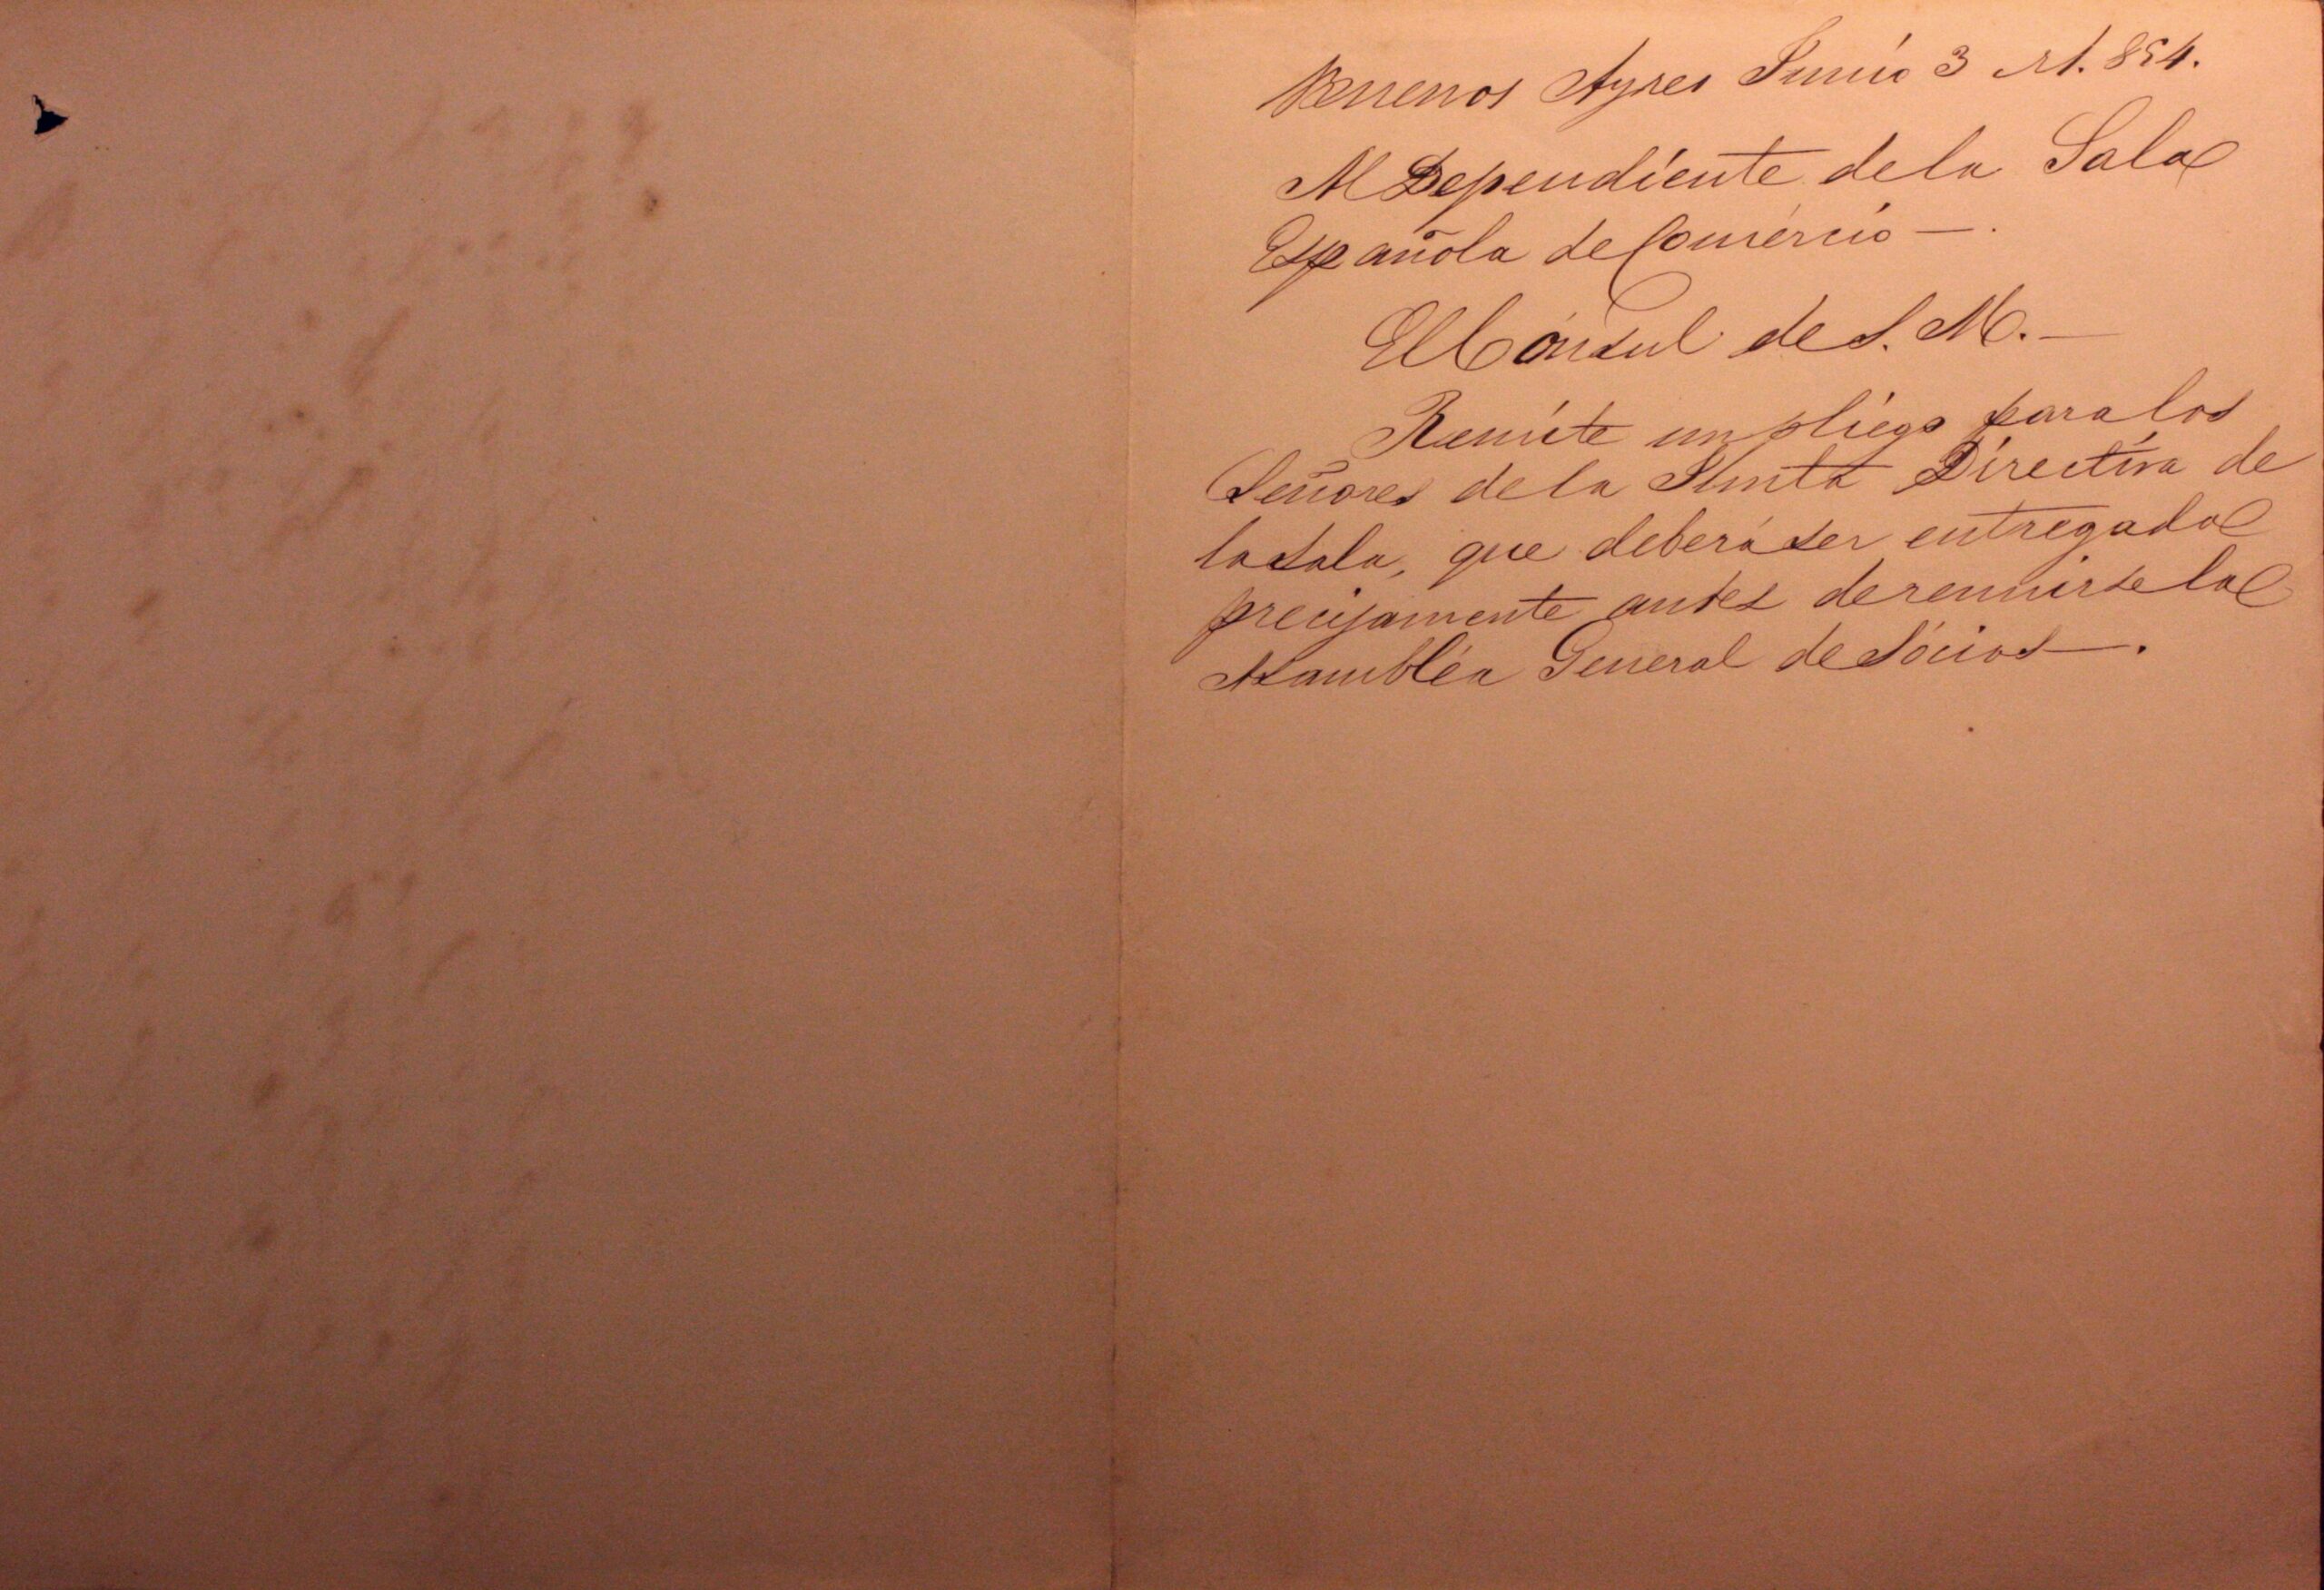 Buenos Ayres Junio 3 de 1.854.
Al Dependiente de la Sala
Española de Comércio —.
El Cónsul de S. M. —
Remite un pliego para los
Señores de la Junta Directiva de
la Sala, que deberá ser entregado
precisamente antes de reunirse la
Asambléa General de Sócios —.